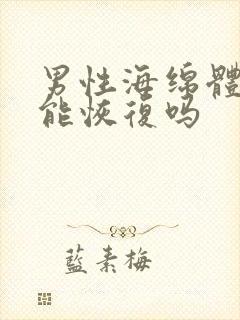 男性海绵體
能恢復吗
藍素梅